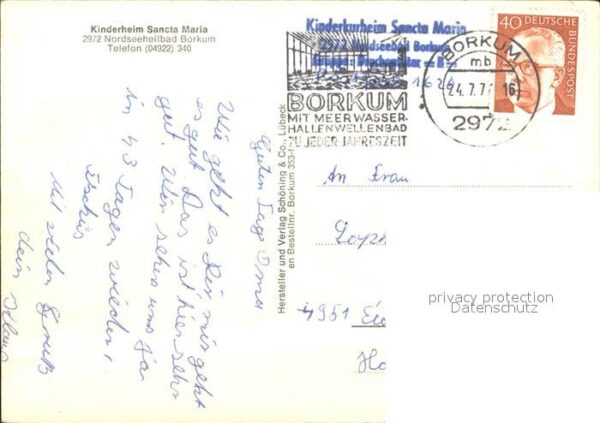 Kinderheim Sancta Maria
2972 Nordseeheilbad Borkum
Telefon (04922) 340
Kinderkurheim Sancta Maria
2972 Nordseebad Borkum
BORKUM
MIT MEERWASSER-
HALLENWELLENBAD
ZU JEDER JAHRESZEIT
BORKUM
mb
24.7.7
16
2972
40 DEUTSCHE
BUNDESPOST
Hersteller und Verlag Schöning & Co., Lübeck
en Bestellnr. Borkum 353
Guten Tag Oma
Wie geht es Dir, mir geht
es gut. Das ist hier sehr
gut. Wir sehen uns ja
in 43 Tagen wieder.
Tschüs
Mit vielen Gruß
dein
An Frau
4951
privacy protection
Datenschutz